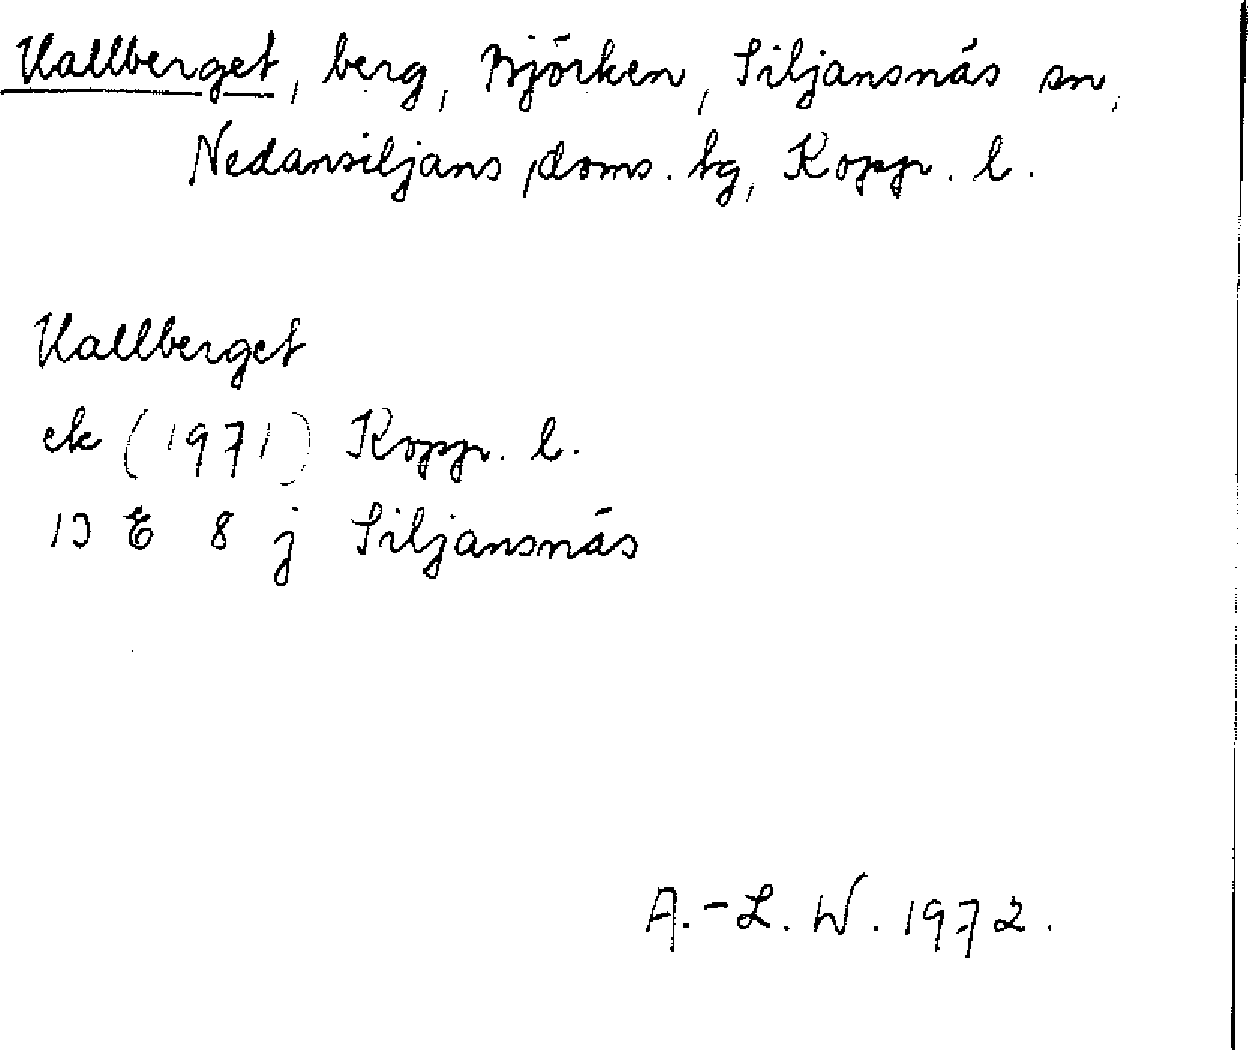 Hallberget, berg, Björken, Siljansnäs sn,
Nedansiljans doms. tg, Koppr. l.
Hallberget
ek (1971) Koppr. l.
13 E 8 j Siljansnäs
A.-L. W. 1972.